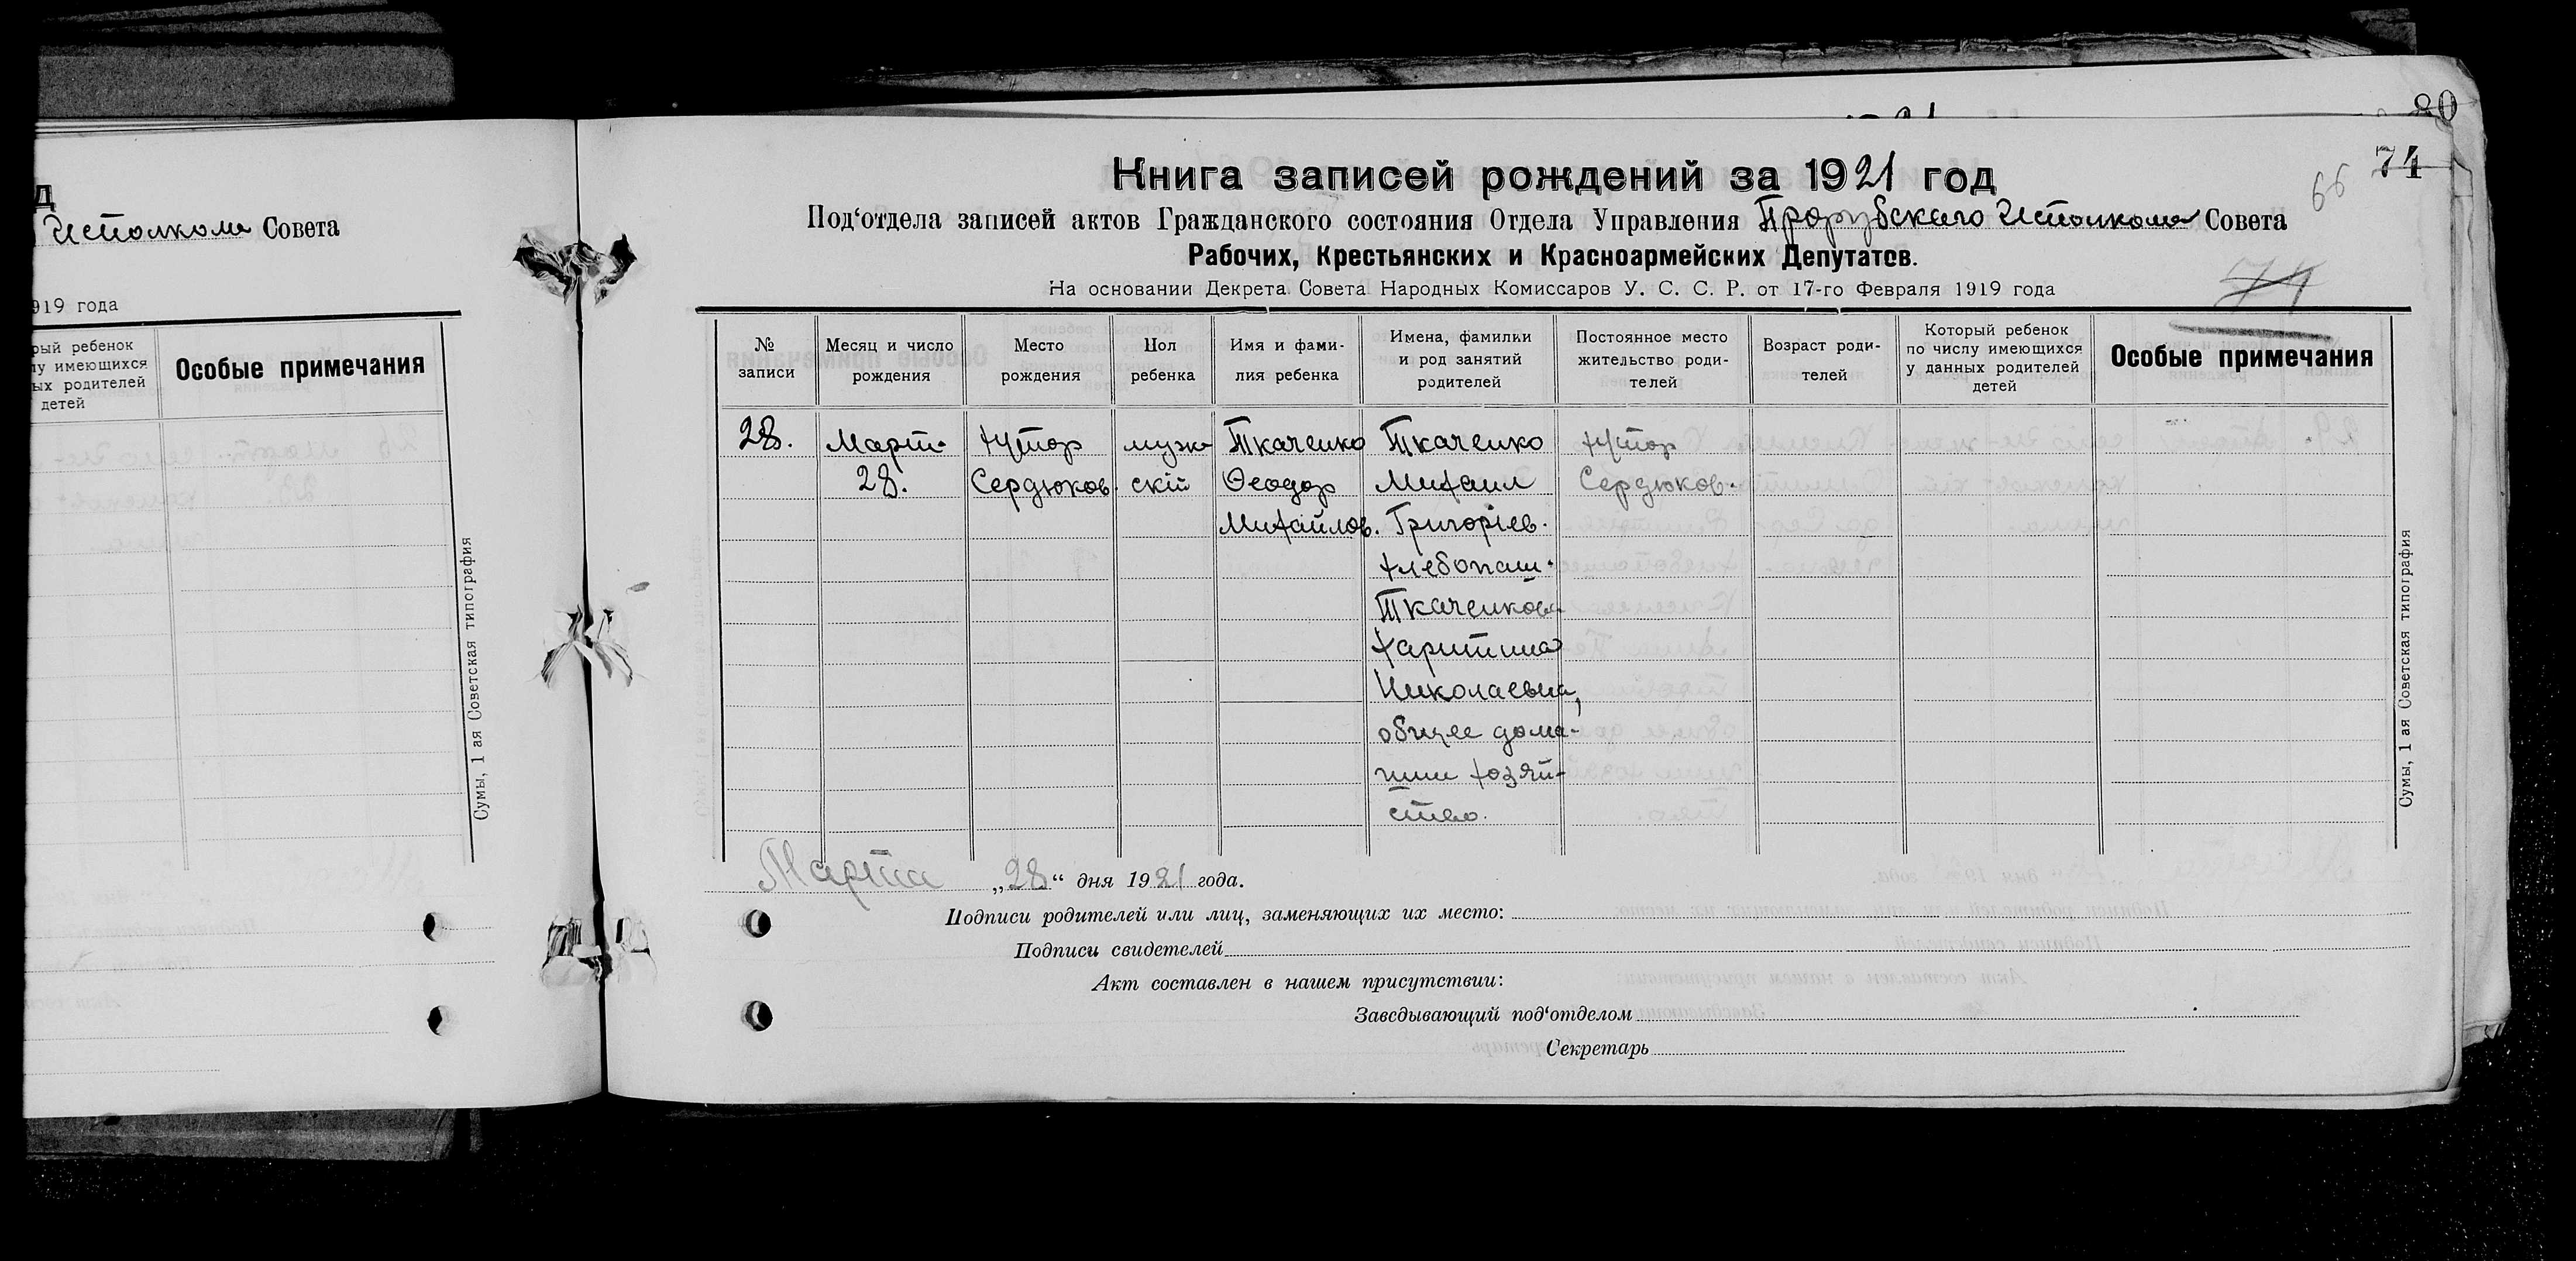 д
Исполкома Совета
919 года
рый ребенок
лу имеющихся
ых родителей
детей
Особые примечания
Сумы, 1 ая Советская типография
80
74
66
Книга записей рождений за 1921 год
Под‘отдела записей актов Гражданского состояния Отдела Управления Прорубскаго Исполкома Совета
Рабочих, Крестьянских и Красноармейских Депутатов.
74
На основании Декрета Совета Народных Комиссаров У. С. С. Р. от 17-го Февраля 1919 года
№ записи
Месяц и число рождения
Место рождения
Пол ребенка
Имя и фами-
лия ребенка
Имена, фамилии
и род занятий
родителей
Постоянное место
жительство роди-
телей
Возраст роди-
телей
Который ребенок
по числу имеющихся
у данных родителей
детей
Особые примечания
28. Март. хутор муж- Ткаченко Ткаченко хутор
28. Сердюков. скій Ѳеодор Михаил Сердюков.
Михайлов. Григоріев.
хлебопаш.
Ткаченкова
Харитина
Николаевна,
общее дома-
шни хозяй-
ство.
Сумы, 1 ая Советская типография
Марта „28“ дня 1921 года.
Подписи родителей или лиц, заменяющих их место:
Подписи свидетелей
Акт составлен в нашем присутствии:
Заведывающий под‘отделом
Секретарь